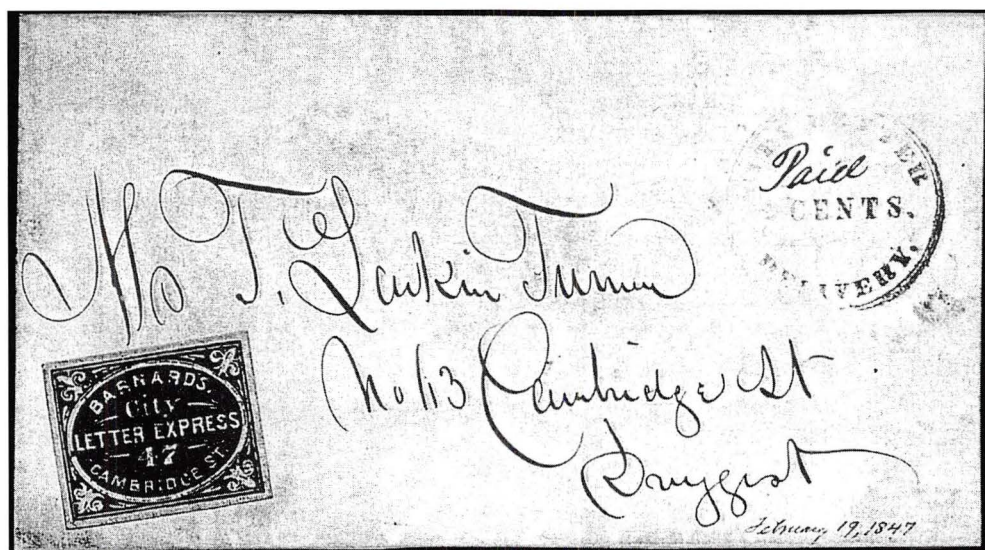 Paid
CENTS.
DELIVERY.
T. Larkin Turner
No 113 Cambridge St
Druggist
BARNARD'S
City
LETTER EXPRESS
47
CAMBRIDGE ST.
February 19, 1847